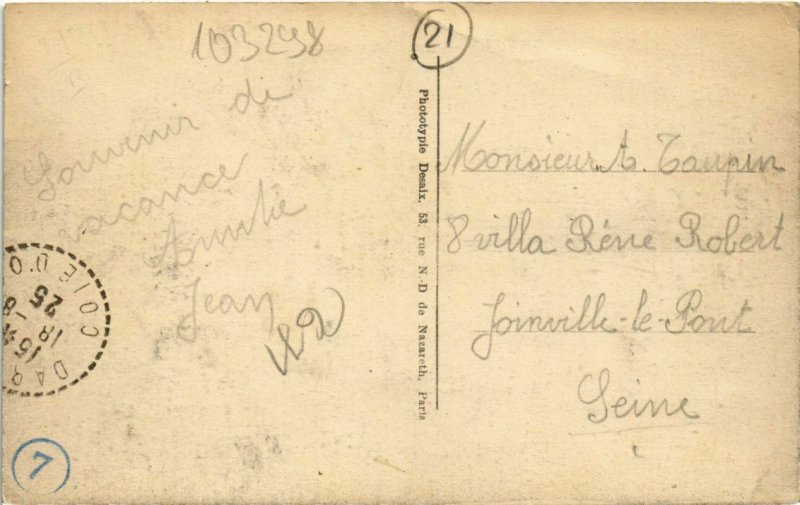 103298
21
Souvenir de
vacance
Amitié
Jean
Phototypie Desaix, 53, rue N.-D de Nazareth, Paris
Monsieur A. Taupin
8 villa Réne Robert
Joinville-le-Pont
Seine
COTE D'O
DAR
15
18 -8
25
7